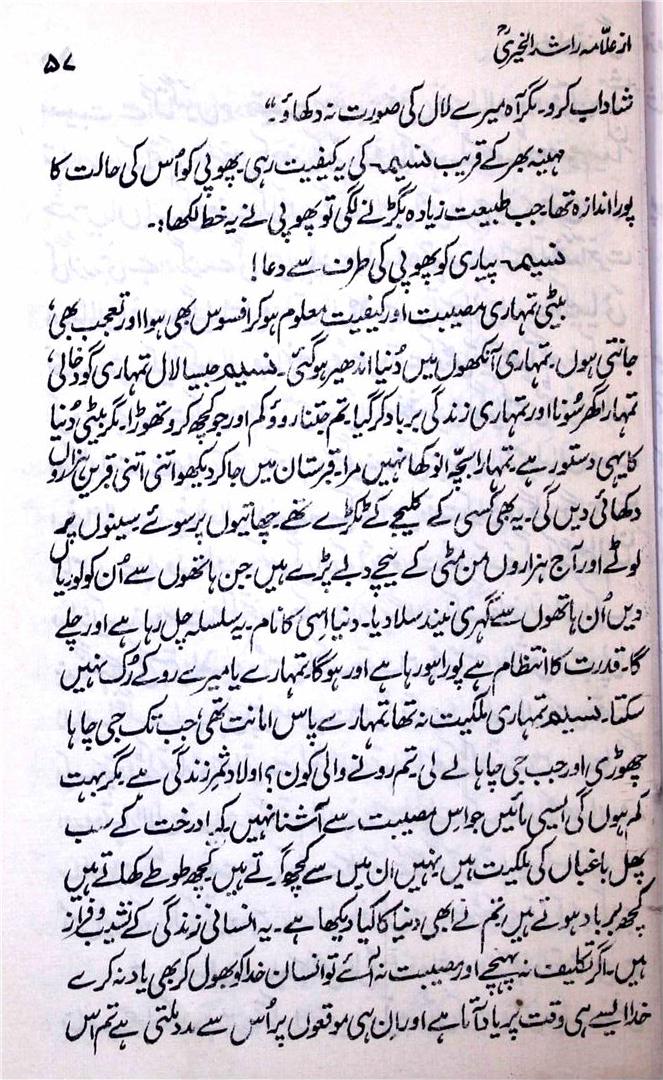 از علّامہ راشد الخیریؒ
۵۷
شاداب کرو۔ مگر آہ میرے لال کی صورت نہ دکھاؤ۔"
مہینہ بھر کے قریب نسیمہ کی یہ کیفیت رہی۔ پھوپی کو اُس کی حالت کا
پورا اندازہ تھا۔ جب طبیعت زیادہ بگڑنے لگی تو پھوپی نے یہ خط لکھا:۔
نسیمہ۔ پیاری کو پھوپی کی طرف سے دعا!
بیٹی تمہاری مصیبت اور کیفیت معلوم ہو کر افسوس بھی ہوا اور تعجب بھی،
جانتی ہوں۔ تمہاری آنکھوں میں دُنیا اندھیر ہو گئی۔ نسیم جیسا لال تمہاری گود خالی،
تمہارا گھر سُونا اور تمہاری زندگی برباد کر گیا۔ تم جتنا روؤ کم اور جو کچھ کرو تھوڑا۔ مگر بیٹی دُنیا
کا یہی دستور ہے۔ تمہارا بچّہ انوکھا نہیں مرا۔ قبرستان میں جا کر دیکھو اتنی اتنی قبریں ہزاروں
دکھائی دیں گی۔ یہ بھی کسی کے کلیجے کے ٹکڑے تھے۔ چھاتیوں پر سوئے سینوں پر
لوٹے اور آج ہزاروں من مٹی کے نیچے دبے پڑے ہیں جن ہاتھوں سے اُن کو لوریاں
دیں اُن ہاتھوں سے گہری نیند سلا دیا۔ دنیا اِسی کا نام۔ یہ سلسلہ چل رہا ہے اور چلے
گا۔ قدرت کا انتظام ہے پورا ہو رہا ہے اور ہوگا۔ تمہارے یا میرے روکے رُک نہیں
سکتا۔ نسیم تمہاری ملکیت نہ تھا تمہارے پاس امانت تھی، جب تک جی چاہا
چھوڑی اور جب جی چاہا لے لی۔ تم رونے والی کون؟ اولاد ثمرِ زندگی ہے۔ مگر بہت
کم ہوں گی ایسی مائیں جو اس مصیبت سے آشنا نہیں کہ، درخت کے سب
پھل باغباں کی ملکیت ہیں نہیں ان میں سے کچھ گرتے ہیں کچھ طوطے کھاتے ہیں
کچھ برباد ہوتے ہیں۔ تم نے ابھی دنیا کا کیا دیکھا ہے۔ یہ انسانی زندگی کے نشیب و فراز
ہیں۔ اگر تکلیف نہ پہنچے اور مصیبت نہ آئے تو انسان خدا کو بھول کر بھی یاد نہ کرے
خدا ایسے ہی وقت پر یاد آتا ہے اور اِن ہی موقعوں پر اُس سے مدد ملتی ہے تم اس